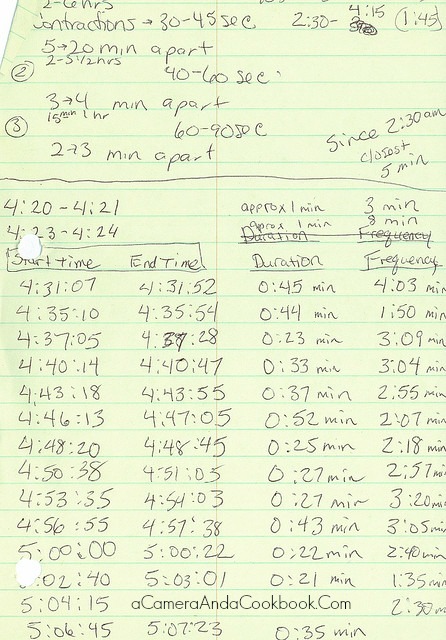 2-6 hrs
contractions → 30-45 sec 2:30- 4:15 (1:45)
5→20 min apart
② 2-5 1/2 hrs
40-60 sec
3→4 min apart
15 min 1 hr
③ 60-90 sec
2→3 min apart
Since 2:30am
closest
5 min
4:20-4:21 approx 1 min 3 min
4:23-4:24 aprox 1 min 8 min
Duration Frequency
Start Time End Time Duration Frequency
4:31:07 4:31:52 0:45 min 4:03 min
4:35:10 4:35:54 0:44 min 1:50 min
4:37:05 4:37:28 0:23 min 3:09 min
4:40:14 4:40:47 0:33 min 3:04 min
4:43:18 4:43:55 0:37 min 2:55 min
4:46:13 4:47:05 0:52 min 2:07 min
4:48:20 4:48:45 0:25 min 2:18 min
4:50:38 4:51:05 0:27 min 2:57 min
4:53:35 4:54:03 0:27 min 3:20 min
4:56:55 4:57:38 0:43 min 3:05 min
5:00:00 5:00:22 0:22 min 2:40 min
:02:40 5:03:01 0:21 min 1:35 min
5:04:15 aCameraAndaCookbook.Com 2:30 m
5:06:45 5:07:23 0:35 min